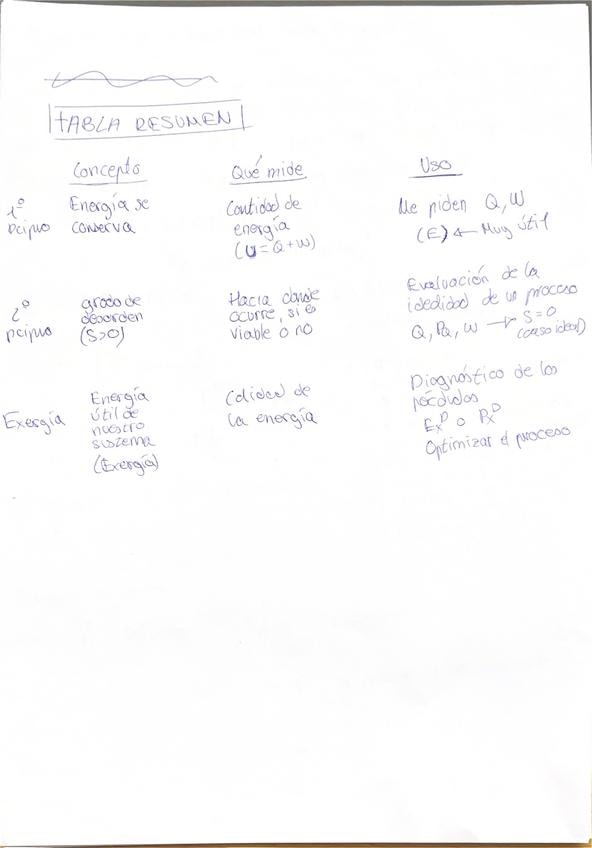 TABLA RESUMEN
Concepto Qué mide Uso
1º pcipio
Energía se
conserva
Cantidad de
energía
(U = Q + W)
Me piden Q, W
(E) ← Muy útil
2º pcipio
grado de
desorden
(S>0)
Hacia donde
ocurre, si es
viable o no
Evaluación de la
idealidad de un proceso
Q, W → S = 0
(caso ideal)
Exergía
Energía
útil de
nuestro
sistema
(Exergía)
Calidad de
la energía
Diagnóstico de las
pérdidas
Optimizar el proceso